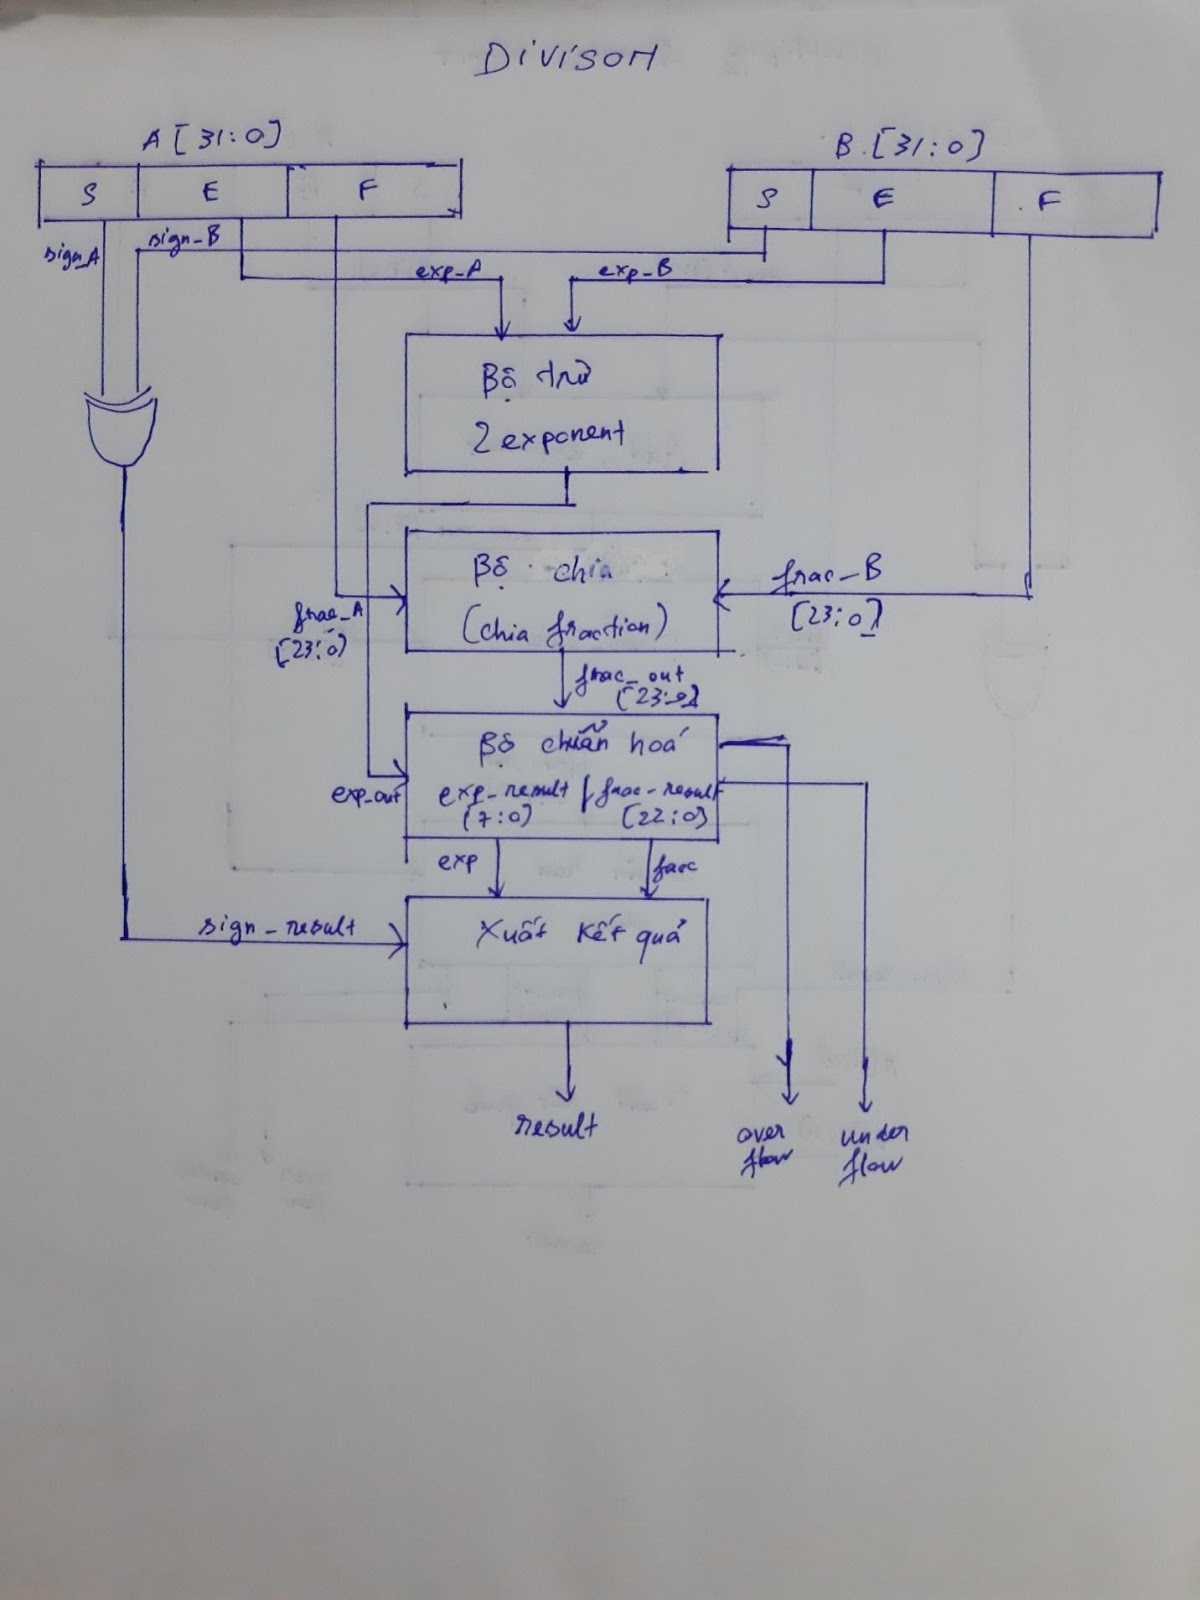 DivisoH
A [31:0]
B.[31:0]
S E F
S E F
sign_A
sign_B
exp_A
exp_B
Bộ trừ
2 exponent
Bộ chia
(chia fraction)
frac_A
[23:0)
frac_B
[23:0]
frac_out
[23:0]
Bộ chuẩn hoá
exp_out
exp_result / frac_result
(7:0) [22:0)
exp
farc
sign_result
Xuất kết quả
result
over
flow
under
flow